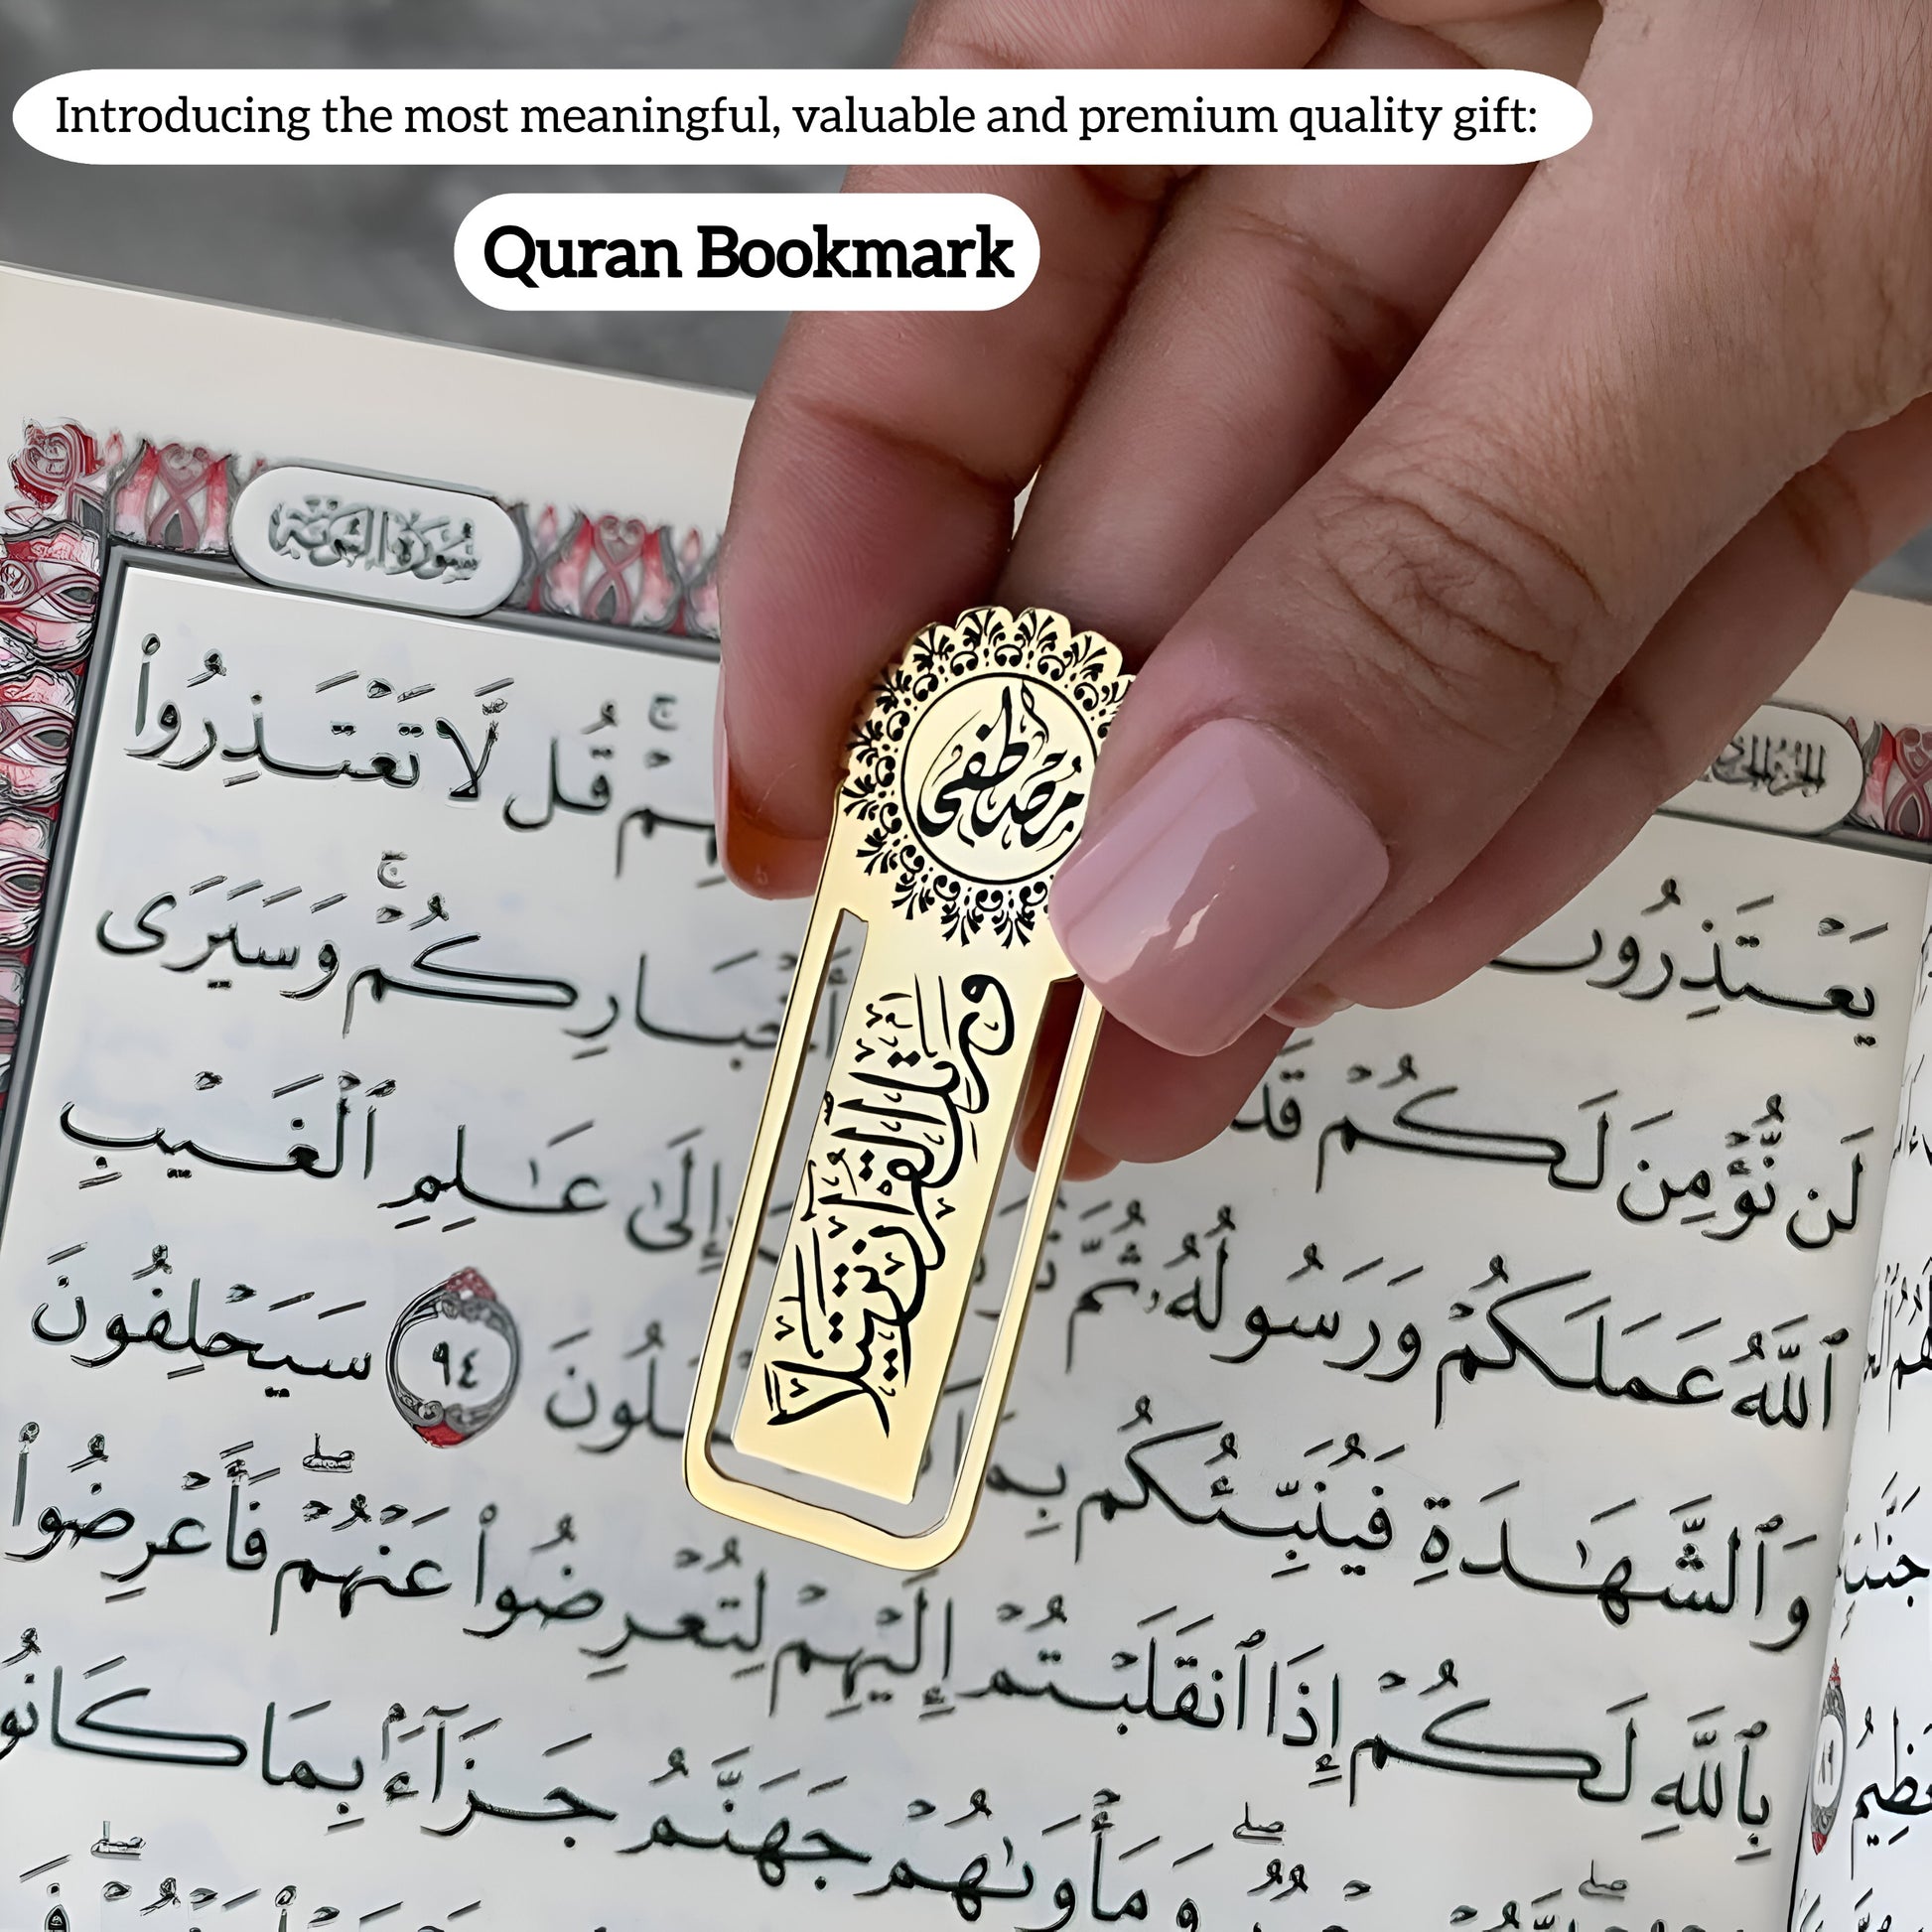 Introducing the most meaningful, valuable and premium quality gift:
Quran Bookmark
سُورَةُ التَّوْبَةِ
مصطفى
ورتل القرآن ترتيلا
يَعْتَذِرُونَ قُل لَّا تَعْتَذِرُوا۟
لَن نُّؤْمِنَ لَكُمْ قَدْ أَخْبَارِكُمْ ۚ وَسَيَرَى
ٱللَّهُ عَمَلَكُمْ وَرَسُولُهُۥ ثُمَّ إِلَىٰ عَـٰلِمِ ٱلْغَيْبِ
وَٱلشَّهَـٰدَةِ فَيُنَبِّئُكُم بِمَا ٩٤ سَيَحْلِفُونَ
بِٱللَّهِ لَكُمْ إِذَا ٱنقَلَبْتُمْ إِلَيْهِمْ لِتُعْرِضُوا۟ عَنْهُمْ ۖ فَأَعْرِضُوا۟
وَمَأْوَىٰهُمْ جَهَنَّمُ جَزَآءًۢ بِمَا